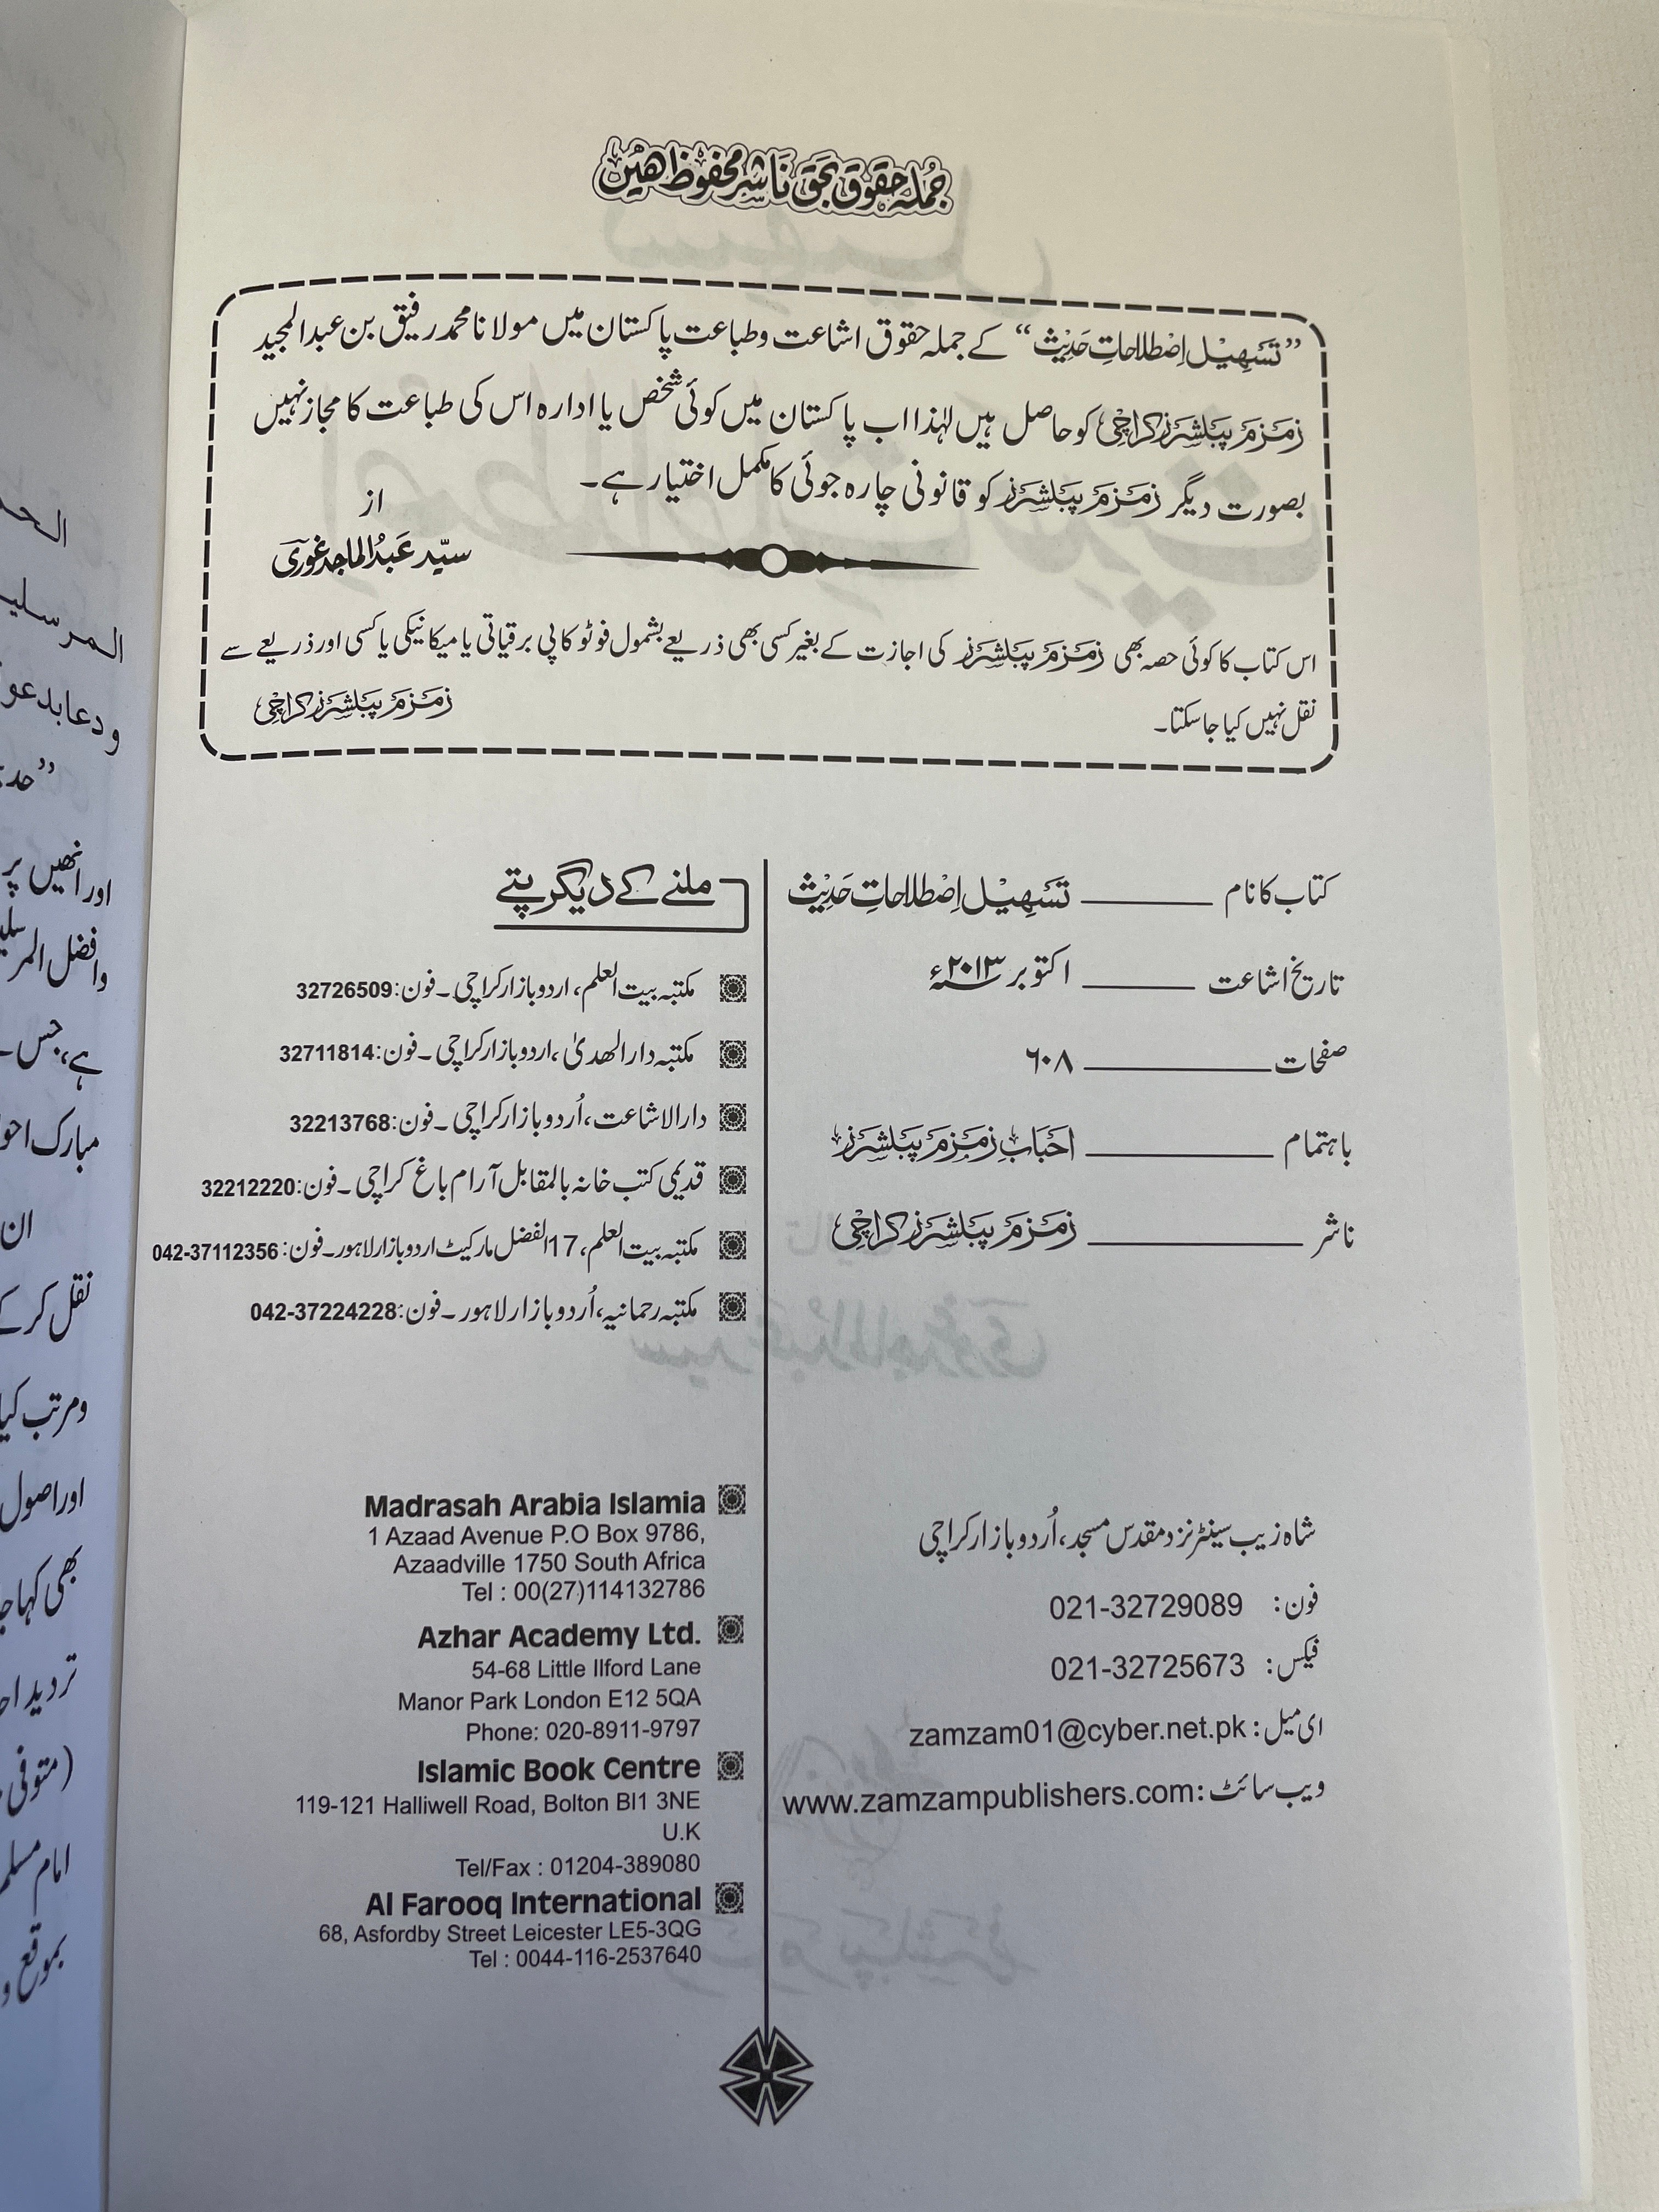 جملہ حقوق بحق ناشر محفوظ ھیں
”تسہیل اصطلاحات حدیث“ کے جملہ حقوق اشاعت وطباعت پاکستان میں مولانا محمد رفیق بن عبدالمجید
زمزم پبلشرز کراچی کو حاصل ہیں لہٰذا اب پاکستان میں کوئی شخص یا ادارہ اس کی طباعت کا مجاز نہیں
بصورت دیگر زمزم پبلشرز کو قانونی چارہ جوئی کا مکمل اختیار ہے۔
از
سیّد عبدالماجد غوری
اس کتاب کا کوئی حصہ بھی زمزم پبلشرز کی اجازت کے بغیر کسی بھی ذریعے بشمول فوٹو کاپی برقیاتی یا میکانیکی یا کسی اور ذریعے سے
نقل نہیں کیا جا سکتا۔
زمزم پبلشرز کراچی
کتاب کا نام تسہیل اصطلاحات حدیث
تاریخ اشاعت اکتوبر ۲۰۱۳ء
صفحات ۶۰۸
باہتمام احباب زمزم پبلشرز
ناشر زمزم پبلشرز کراچی
شاہ زیب سینٹر نزد مقدس مسجد، اُردو بازار کراچی
فون: 021-32729089
فیکس: 021-32725673
ای میل: zamzam01@cyber.net.pk
ویب سائٹ: www.zamzampublishers.com
ملنے کے دیگر پتے
مکتبہ بیت العلم، اردو بازار کراچی۔ فون: 32726509
مکتبہ دارالھدیٰ، اردو بازار کراچی۔ فون: 32711814
دارالاشاعت، اُردو بازار کراچی۔ فون: 32213768
قدیمی کتب خانہ بالمقابل آرام باغ کراچی۔ فون: 32212220
مکتبہ بیت العلم، 17 الفضل مارکیٹ اردو بازار لاہور۔ فون: 042-37112356
مکتبہ رحمانیہ، اُردو بازار لاہور۔ فون: 042-37224228
Madrasah Arabia Islamia
1 Azaad Avenue P.O Box 9786,
Azaadville 1750 South Africa
Tel : 00(27)114132786
Azhar Academy Ltd.
54-68 Little Ilford Lane
Manor Park London E12 5QA
Phone: 020-8911-9797
Islamic Book Centre
119-121 Halliwell Road, Bolton Bl1 3NE
U.K
Tel/Fax : 01204-389080
Al Farooq International
68, Asfordby Street Leicester LE5-3QG
Tel : 0044-116-2537640
اور انھیں پر
وافضل
ہے، جس
مبارک
ان
نقل کر کے
ومرتب کیا
اور اصول
بھی کہا
تردید
(متوفی
امام مسلم
بموقع و